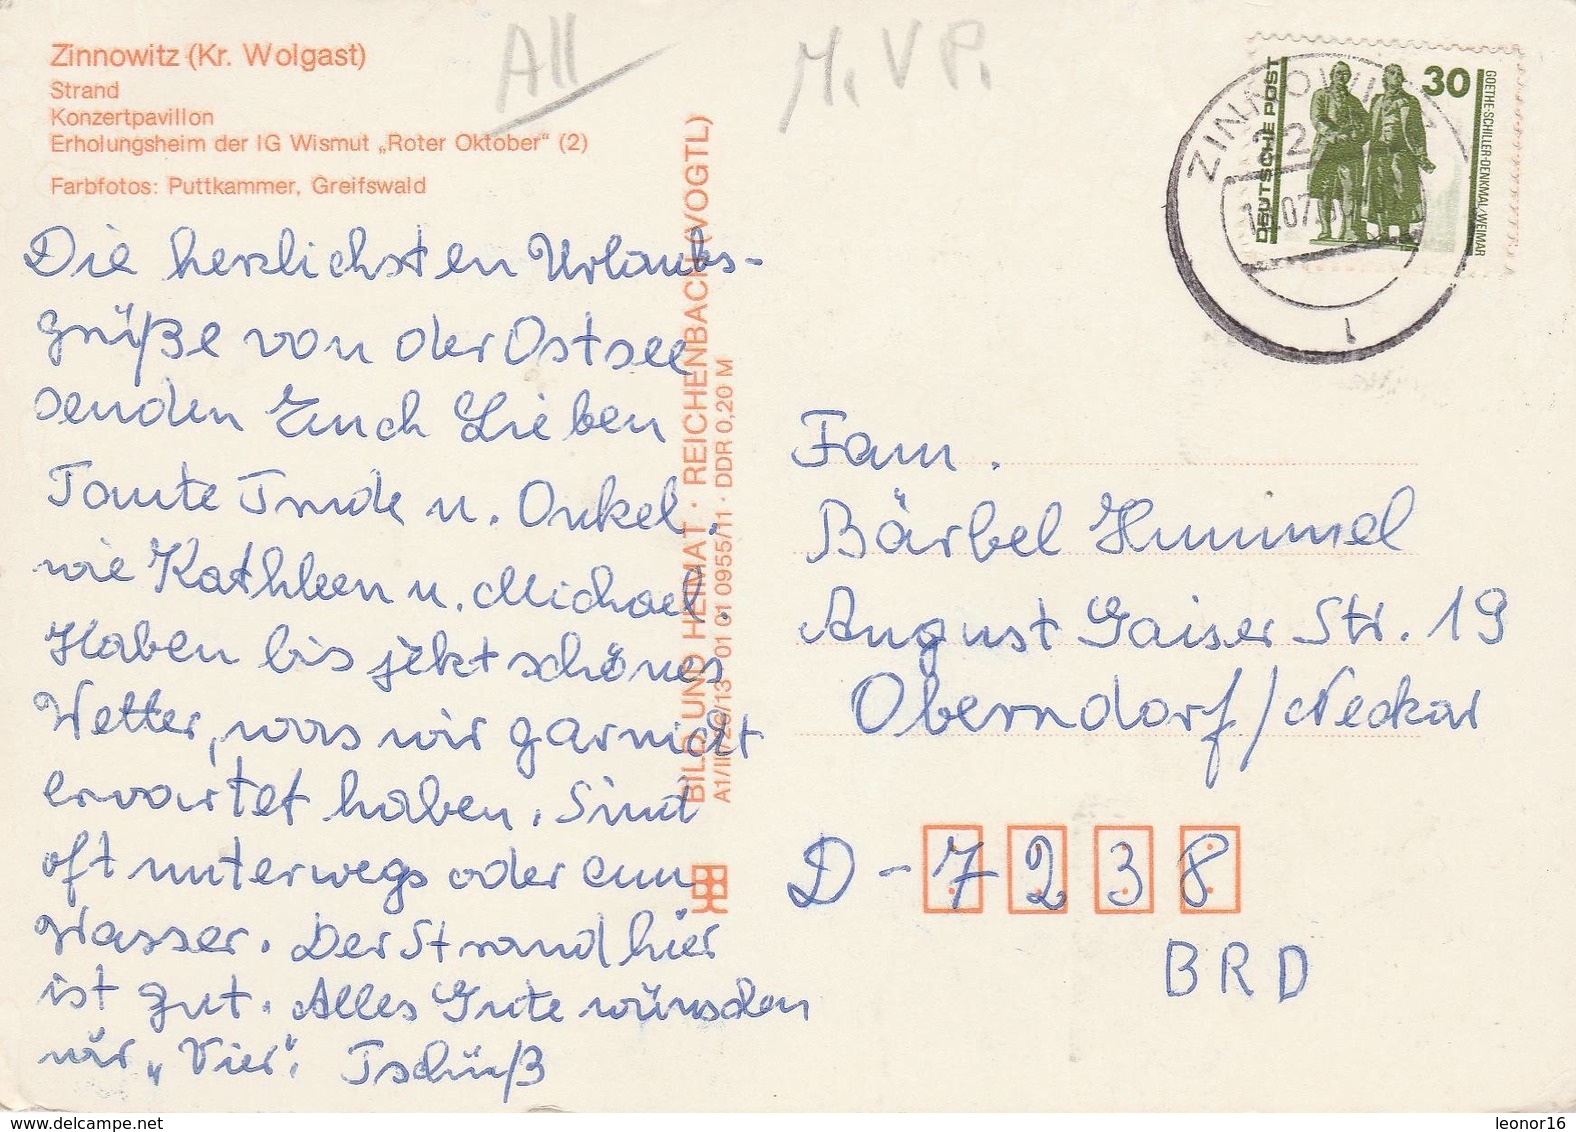 Zinnowitz (Kr. Wolgast)
Strand
Konzertpavillon
Erholungsheim der IG Wismut „Roter Oktober“ (2)
Farbfotos: Puttkammer, Greifswald
All
M.V.P.
Die herzlichsten Urlaubs-
grüße von der Ostsee
senden Euch Lieben
Tante Trude u. Onkel,
wie Kathleen u. Michael.
Haben bis jetzt schönes
Wetter, was wir garnicht
erwartet haben. Sind
oft unterwegs oder am
Wasser. Der Strand hier
ist gut. Alles Gute wünschen
wir „Vier“. Tschüß
BILD UND HEIMAT · REICHENBACH (VOGTL)
01 01 0955/11 · DDR 0,20 M
ZINNOWITZ
1
DEUTSCHE POST
30
GOETHE-SCHILLER-DENKMAL/WEIMAR
Fam.
Bärbel Hummel
August Gaiser Str. 19
Oberndorf/Neckar
D-7238
BRD
leonor16